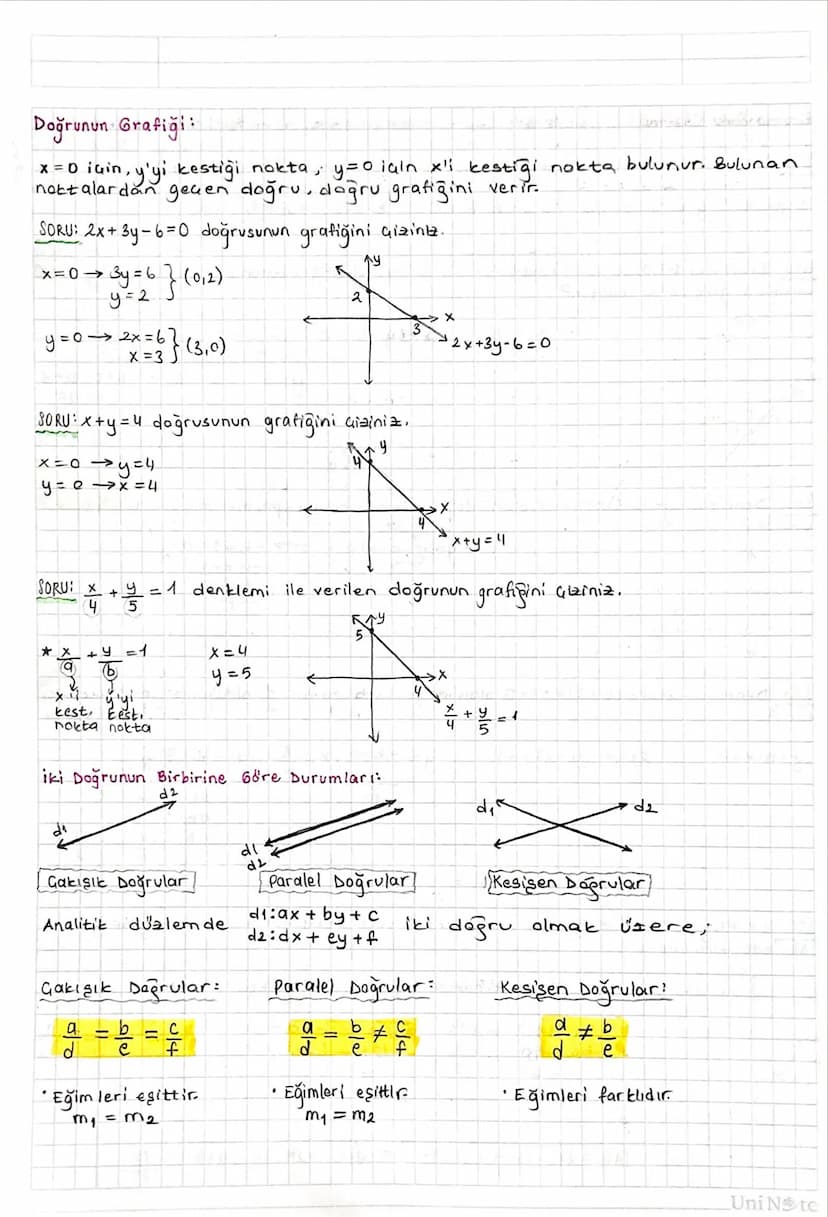 Doğrunun Grafiği:
x=0 için, y'yi kestiği nokta, y=0 için x'i kestiği nokta bulunur. Bulunan
noktalardan geçen doğru, doğru grafiğini verir.
SORU: 2x+3y-6=0 doğrusunun grafiğini çiziniz.
x=0 → 3y=6 } (0,2)
y=2
y=0 → 2x=6 } (3,0)
x=3
y
2
x
3
2x+3y-6=0
SORU: x+y=4 doğrusunun grafiğini çiziniz.
x=0 → y=4
y=0 → x=4
y
4
x
4
x+y=4
SORU: x/4 + y/5 = 1 denklemi ile verilen doğrunun grafiğini çiziniz.
* x/a + y/b = 1
x'i y'yi
kest. kest.
nokta nokta
x=4
y=5
y
5
x
4
x/4 + y/5 = 1
İki Doğrunun Birbirine Göre Durumları:
d1 d2
d1
d2
d1 d2
Çakışık Doğrular Paralel Doğrular Kesişen Doğrular
Analitik düzlemde d1: ax + by + c iki doğru olmak üzere;
d2: dx + ey + f
Çakışık Doğrular: Paralel Doğrular: Kesişen Doğrular:
a/d = b/e = c/f a/d = b/e ≠ c/f a/d ≠ b/e
• Eğimleri eşittir. • Eğimleri eşittir. • Eğimleri farklıdır.
m1 = m2 m1 = m2
UniNote